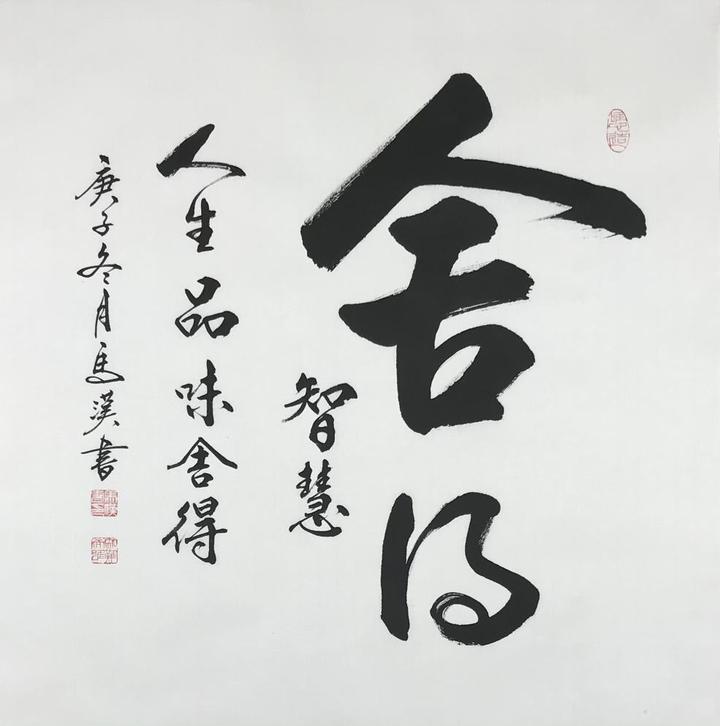 舍得
智慧
人生品味舍得
庚子冬月馬漢書